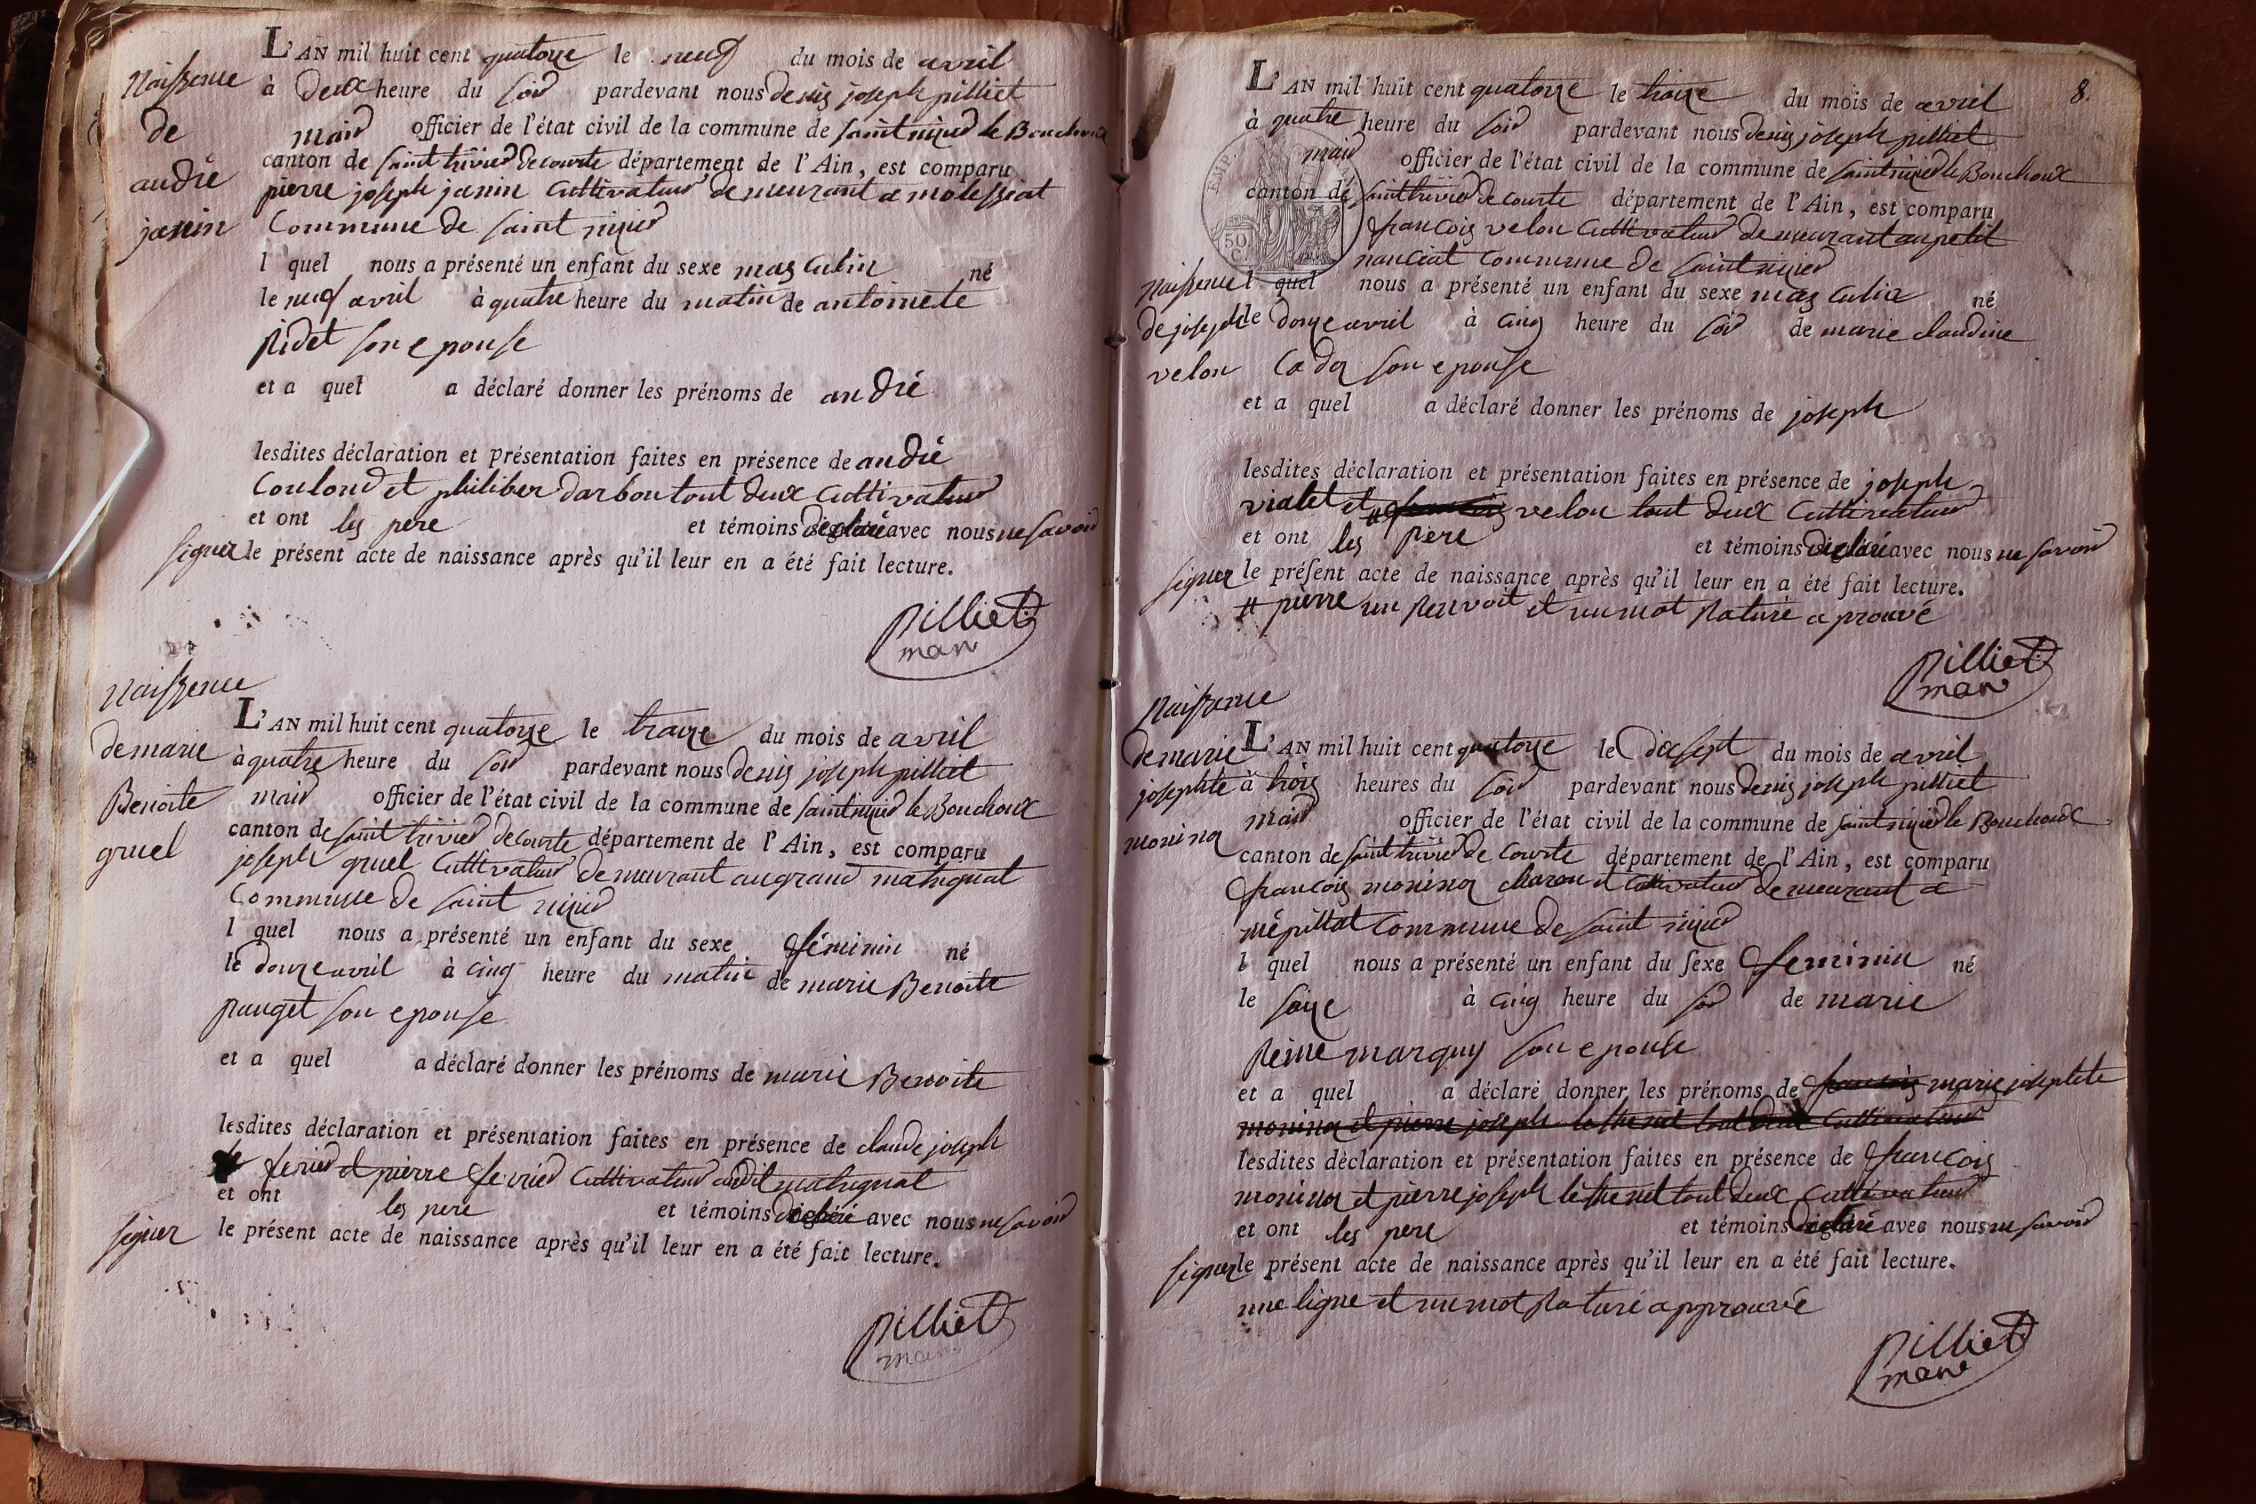 Naissence
de
andré
janin
L'AN mil huit cent quatorze le neuf du mois de avril
à deux heure du soir pardevant nous denis joseph pilliet
mair officier de l'état civil de la commune de saint nizier le Bouchoux
canton de saint trivier de courte département de l'Ain, est comparu
pierre joseph janin cultivateur demeurant a molessiat
Commune de saint nizier
l quel nous a présenté un enfant du sexe masculin né
le neuf avril à quatre heure du matin de antoinete
Ridet son epouse
et a quel a déclaré donner les prénoms de andré
lesdites déclaration et présentation faites en présence de andré
Coulond et philiber darbon tout deux cultivateur
et ont les pere et témoins déclaré avec nous ne savoir
signer le présent acte de naissance après qu'il leur en a été fait lecture.
pilliet
mair
Naissence
de marie
Benoite
gruel
L'AN mil huit cent quatorze le traize du mois de avril
à quatre heure du soir pardevant nous denis joseph pilliet
mair officier de l'état civil de la commune de saint nizier le Bouchoux
canton de saint trivier de courte département de l'Ain, est comparu
joseph gruel cultivateur demeurant au grand matignat
Commune de saint nizier
l quel nous a présenté un enfant du sexe féminin né
le douze avril à cinq heure du matin de marie Benoite
pauget son epouse
et a quel a déclaré donner les prénoms de marie Benoite
lesdites déclaration et présentation faites en présence de claude joseph
ferier et pierre fevrier cultivateur audit matignat
et ont les pere et témoins déclaré avec nous ne savoir
signer le présent acte de naissance après qu'il leur en a été fait lecture.
pilliet
mair
8.
L'AN mil huit cent quatorze le traize du mois de avril
à quatre heure du soir pardevant nous denis joseph pilliet
mair officier de l'état civil de la commune de saint nizier le Bouchoux
canton de saint trivier de courte département de l'Ain, est comparu
françois velon cultivateur demeurant au petit
nanciat commune de saint nizier
50
C.
Naissence
de joseph
velon
l quel nous a présenté un enfant du sexe masculin né
le douze avril à cinq heure du soir de marie claudine
Cadoz son epouse
et a quel a déclaré donner les prénoms de joseph
lesdites déclaration et présentation faites en présence de joseph
vialet et # françois velon tout deux cultivateur
et ont les pere et témoins déclaré avec nous ne savoir
signer le présent acte de naissance après qu'il leur en a été fait lecture.
# pierre un renvoit et un mot rature a prouvé
pilliet
mair
Naissence
de marie
josephte
moninoz
L'AN mil huit cent quatorze le dixsept du mois de avril
à trois heures du soir pardevant nous denis joseph pilliet
mair officier de l'état civil de la commune de saint nizier le Bouchoux
canton de saint trivier de courte département de l'Ain, est comparu
françois moninoz charon et cultivateur demeurant a
mépillat commune de saint nizier
l quel nous a présenté un enfant du sexe feminin né
le saize à cinq heure du soir de marie
Reine marguy son epouse
et a quel a déclaré donner les prénoms de françois marie josephte
moninoz et pierre joseph tout deux cultivateur
lesdites déclaration et présentation faites en présence de françois
moninoz et pierre joseph tout deux cultivateur
et ont les pere et témoins déclaré avec nous ne savoir
signer le présent acte de naissance après qu'il leur en a été fait lecture.
une ligne et un mot raturé approuvé
pilliet
mair